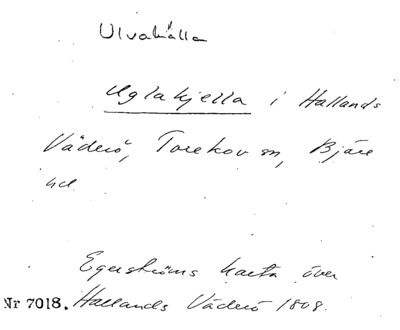 Ulvakälla
Uglakjella i Hallands
Väderö, Torekov sn, Bjäre
hd
Egerströms karta över
Nr 7018. Hallands Väderö 1808.